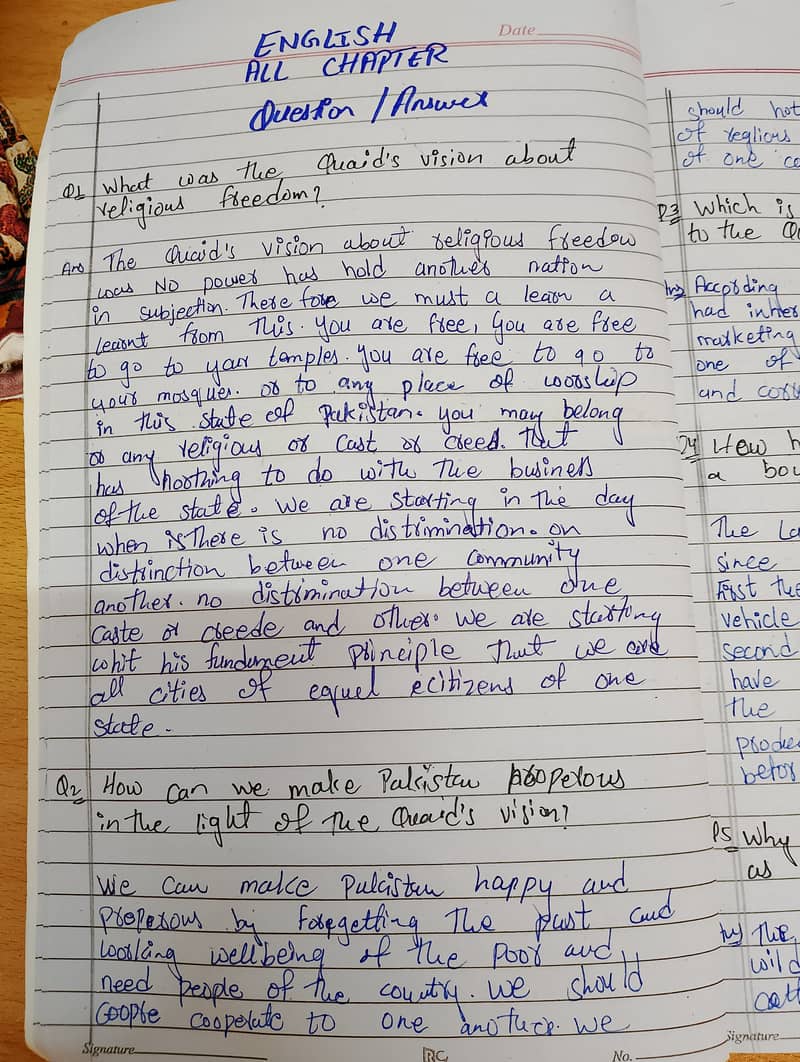 Date
ENGLISH
ALL CHAPTER
Question / Answer
Q1 What was the Quaid's vision about
religious freedom?
Ans The Quaid's vision about religious freedom
was No power has hold another nation
in subjection. There fore we must a learn a
learnt from this. you are free, you are free
to go to your temples. you are free to go to
your mosques. or to any place of worship
in this state of Pakistan. you may belong
to any religious or cast or creed. That
has noorthing to do with the business
of the state. we are starting in the day
when is there is no distrimination. on
distrinction between one community
another. no distrimination between one
caste or creede and other. we are starting
whit his fundument principle that we are
all cities of equel ecitizens of one
state.
Q2 How can we make Pakistan propelous
in the light of the Quaid's vision?
We can make Pakistan happy and
properous by foregetting the past and
working wellbeing of the poor and
need people of the country. we should
coopte coopelate to one another. we
Signature
RC
No.
should not
of reglious
of one co
Q3 Which is
to the Q
Ans According
had inher
marketing
one of
and corr
Q4 How h
a bou
The La
since
First the
vehicle
second
have
the
produc
befor
Q5 Why
as
Ans The
wild
catt
Signature